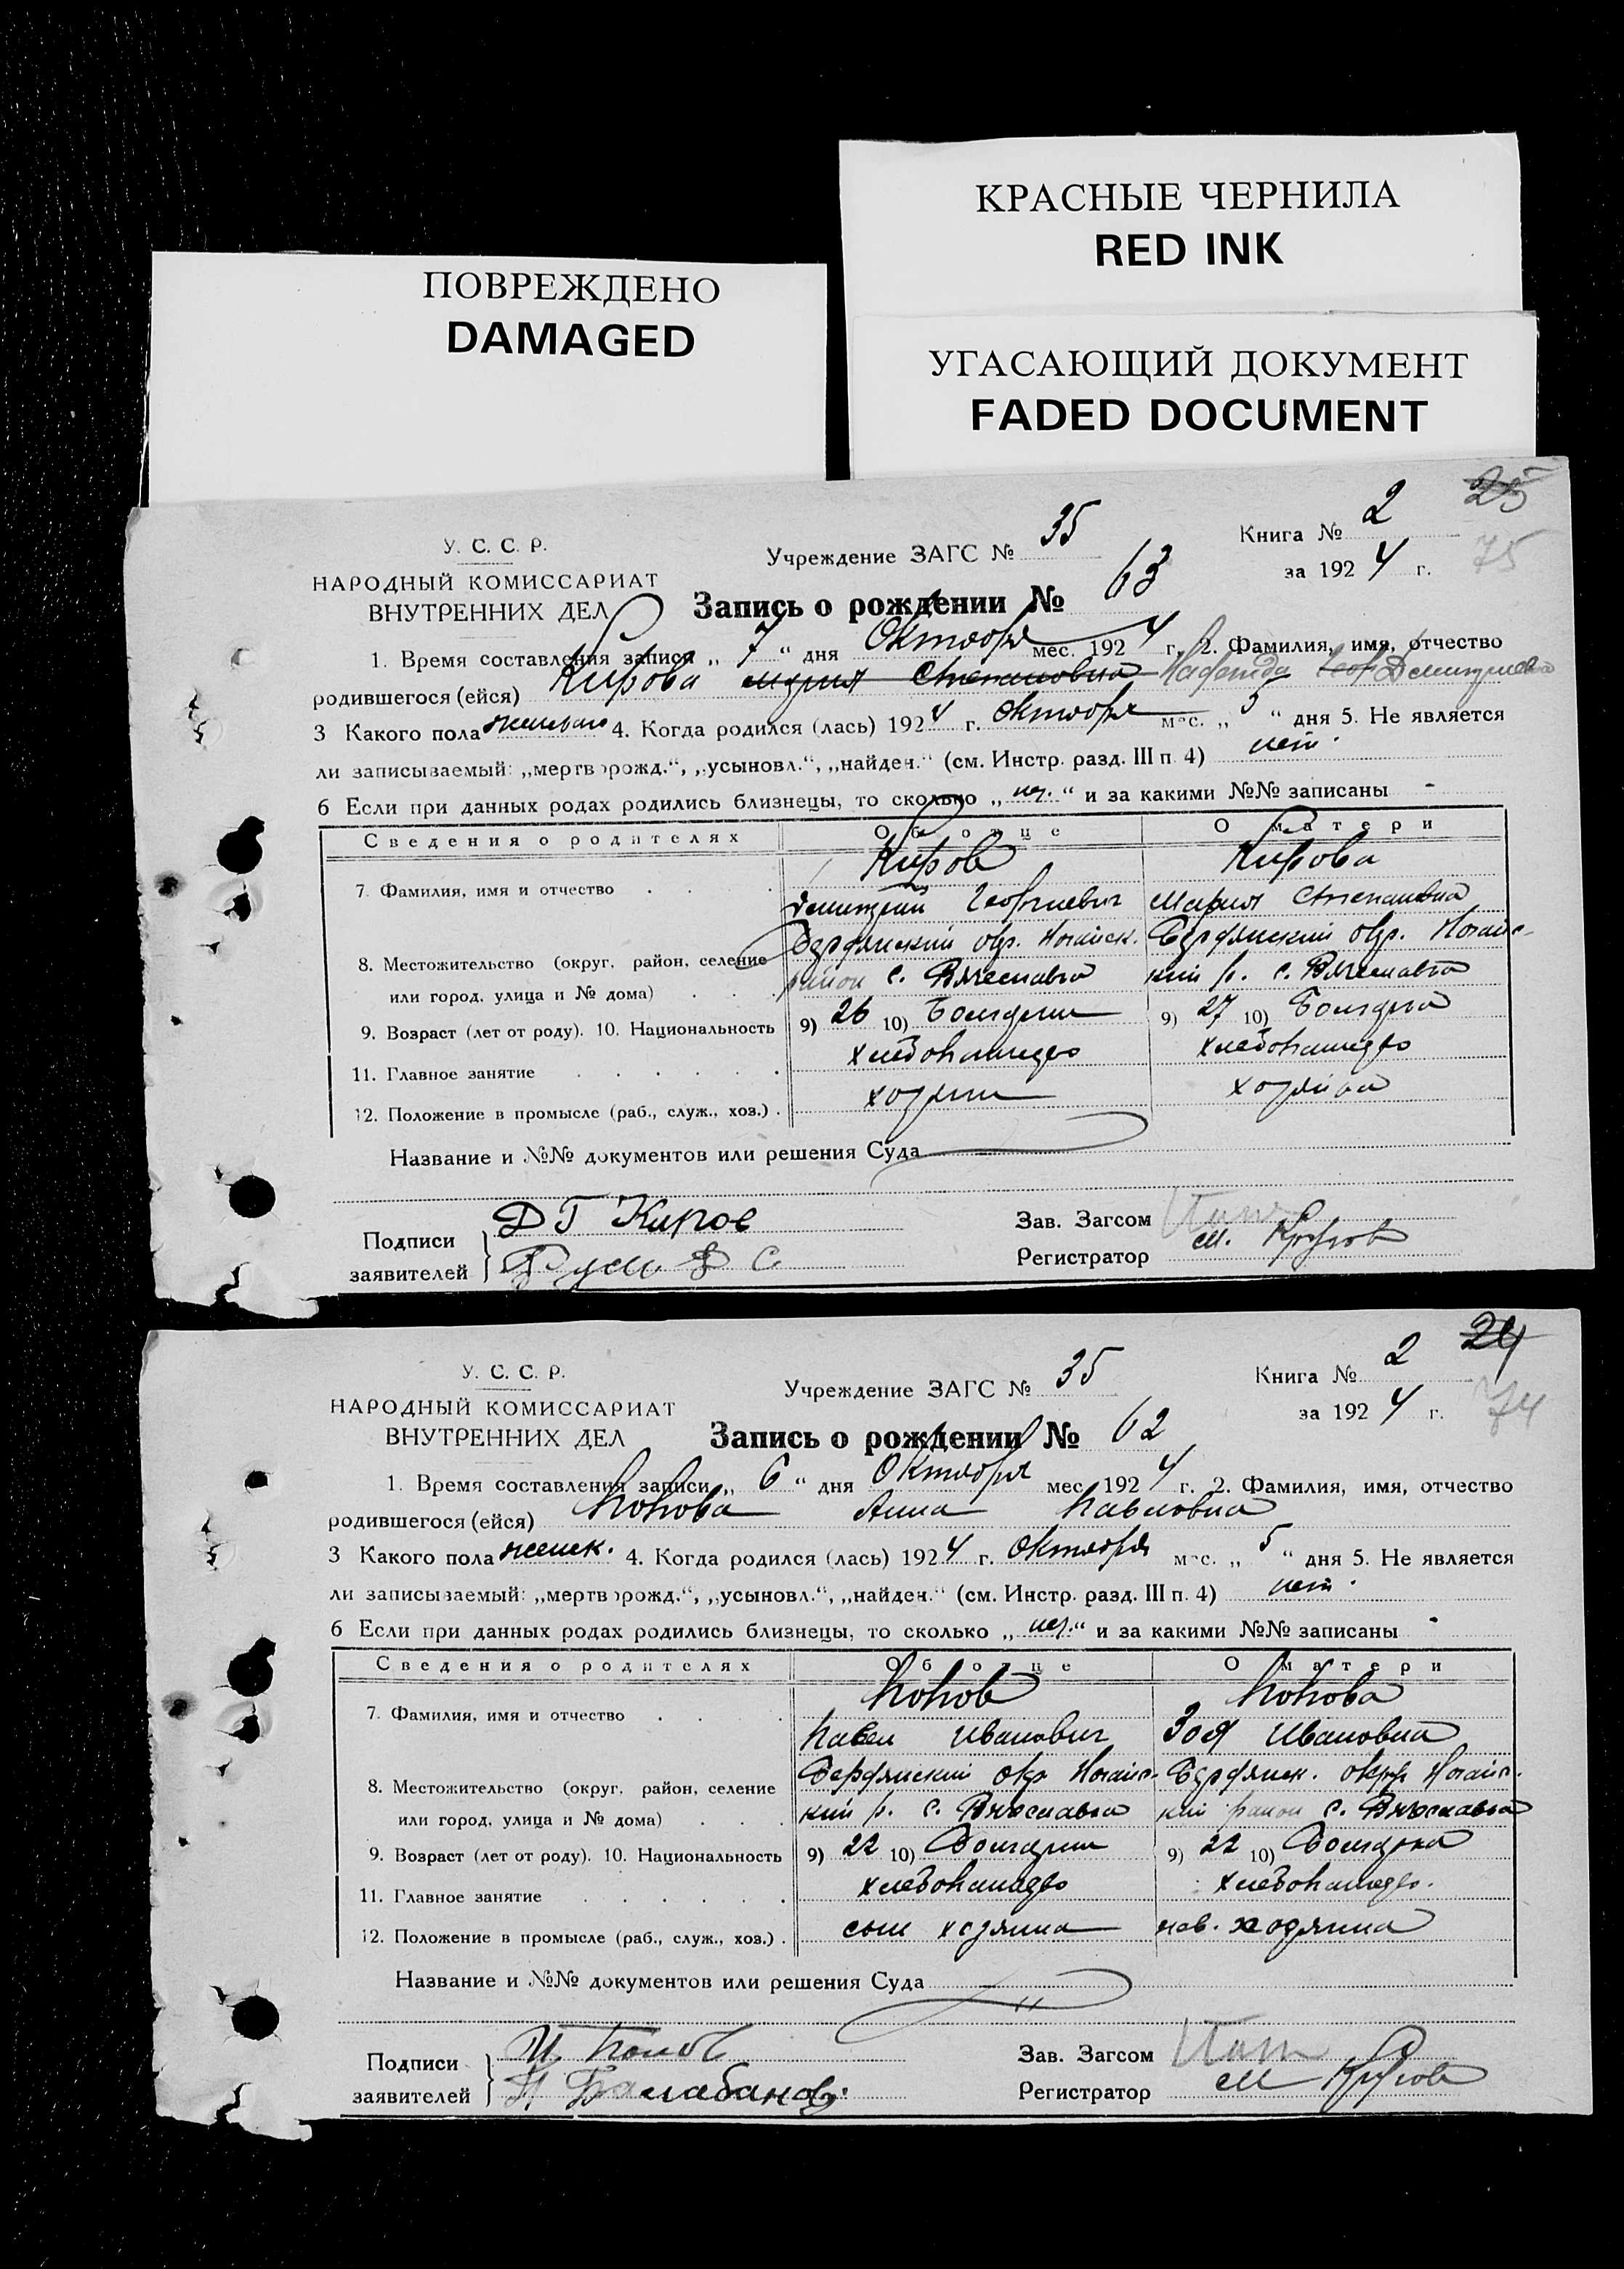 КРАСНЫЕ ЧЕРНИЛА
RED INK
ПОВРЕЖДЕНО
DAMAGED
УГАСАЮЩИЙ ДОКУМЕНТ
FADED DOCUMENT
25
У. С. С. Р. Учреждение ЗАГС № 35 Книга № 2
НАРОДНЫЙ КОМИССАРИАТ за 1924 г. 75
ВНУТРЕННИХ ДЕЛ Запись о рождении № 63
1. Время составления записи „ 7 “ дня Октября мес. 1924 г. 2. Фамилия, имя, отчество
родившегося (ейся) Кирова Мария Степановна Надежда Дмитриевна
3 Какого пола женского 4. Когда родился (лась) 1924 г. Октября мес. „ 5 “ дня 5. Не является
ли записываемый: „мертворожд.“, „усыновл.“, „найден.“ (см. Инстр. разд. III п. 4) нет.
6 Если при данных родах родились близнецы, то сколько „ нет. “ и за какими №№ записаны -
Сведения о родителях Об отце О матери
7. Фамилия, имя и отчество Киров Кирова
Дмитрий Георгиевич Мария Степановна
8. Местожительство (округ, район, селение или город, улица и № дома) Бердянский окр. Ногайск. Бердянский окр. Ногайс-
район с. Вячеславка кий р. с. Вячеславка
9. Возраст (лет от роду). 10. Национальность 9) 26 10) Болгарин 9) 27 10) Болгарка
11. Главное занятие хлебопашество хлебопашество
12. Положение в промысле (раб., служ., хоз.) хозяин хозяйка
Название и №№ документов или решения Суда
Подписи заявителей Д Г Киров Зав. Загсом
Регистратор
У. С. С. Р. Учреждение ЗАГС № 35 Книга № 2 24
НАРОДНЫЙ КОМИССАРИАТ за 1924 г. 74
ВНУТРЕННИХ ДЕЛ Запись о рождении № 62
1. Время составления записи „ 6 “ дня Октября мес. 1924 г. 2. Фамилия, имя, отчество
родившегося (ейся) Попова Анна Павловна
3 Какого пола женск. 4. Когда родился (лась) 1924 г. Октября мес. „ 5 “ дня 5. Не является
ли записываемый: „мертворожд.“, „усыновл.“, „найден.“ (см. Инстр. разд. III п. 4) нет.
6 Если при данных родах родились близнецы, то сколько „ нет. “ и за какими №№ записаны -
Сведения о родителях Об отце О матери
7. Фамилия, имя и отчество Попов Попова
Павел Иванович Зоя Ивановна
8. Местожительство (округ, район, селение или город, улица и № дома) Бердянский окр Ногайс- Бердянск. округ Ногайс.
кий р. с. Вячеславка кий район с. Вячеславка
9. Возраст (лет от роду). 10. Национальность 9) 22 10) Болгарин 9) 22 10) Болгарка
11. Главное занятие хлебопашество хлебопашество.
12. Положение в промысле (раб., служ., хоз.) сын хозяина нев. хозяина
Название и №№ документов или решения Суда
Подписи заявителей И Попов Зав. Загсом
Балабанов Регистратор